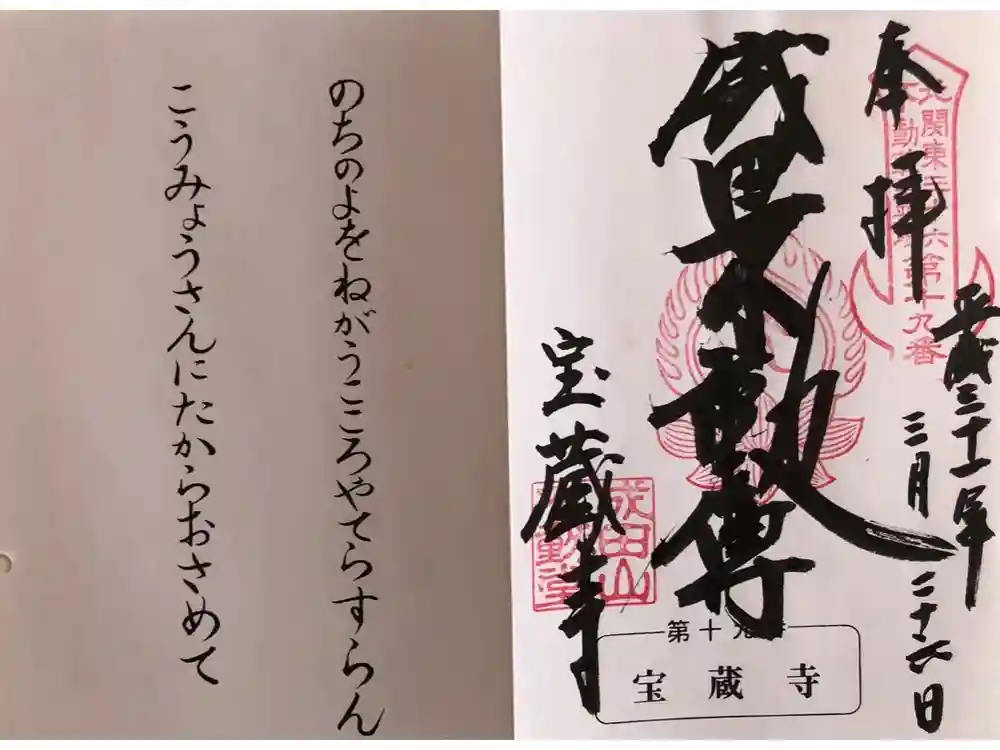 奉拝
北関東三十六
不動尊霊場
第十九番
平成三十一年
三月二十六日
成田山不動尊
宝蔵寺
成田山
不動堂
第十九番
宝蔵寺
のちのよをねがうこころやてらすらん
こうみょうさんにたからおさめて